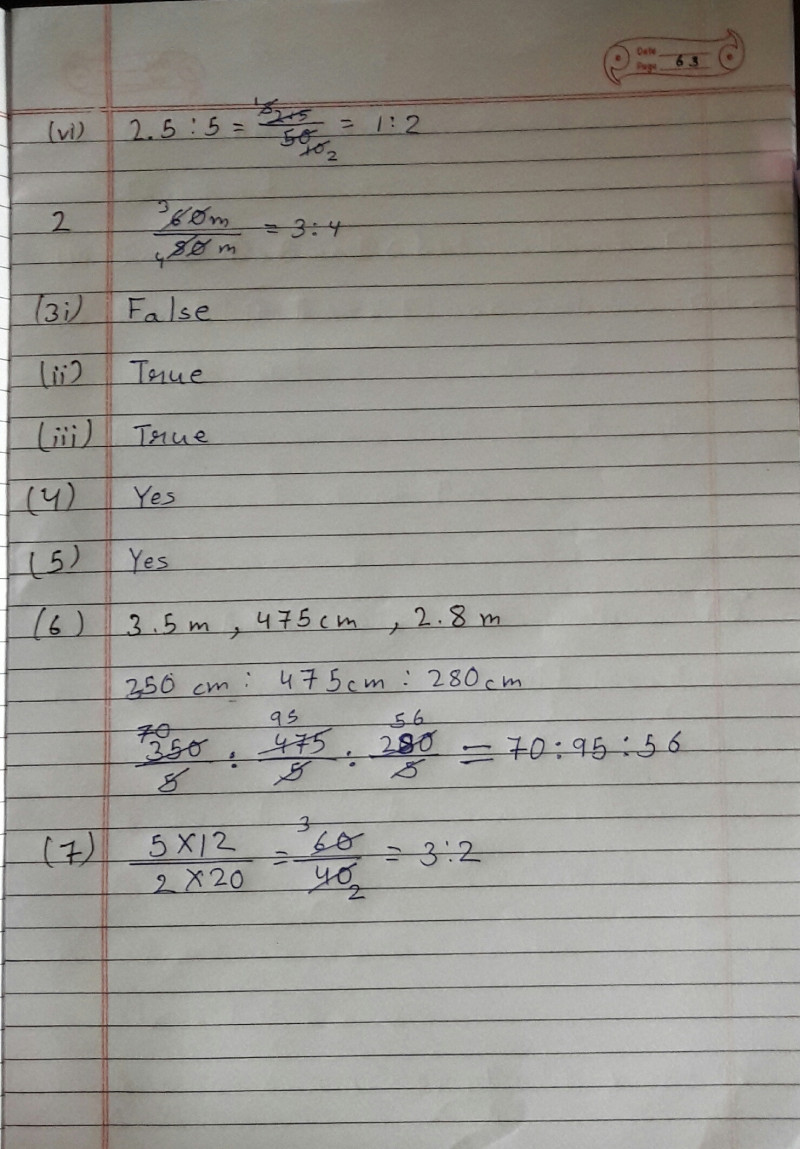 Date
Page 63
(vi) 2.5 : 5 = 25/50 = 1 : 2
2 60m/80m = 3 : 4
(3i) False
(ii) True
(iii) True
(4) Yes
(5) Yes
(6) 3.5 m , 475 cm , 2.8 m
250 cm : 475cm : 280cm
70 95 56
350/5 : 475/5 : 280/5 = 70 : 95 : 56
(7) 5×12/2×20 = 60/40 = 3 : 2